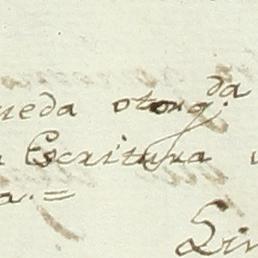 ueda otorg.da
Escritura
a.=